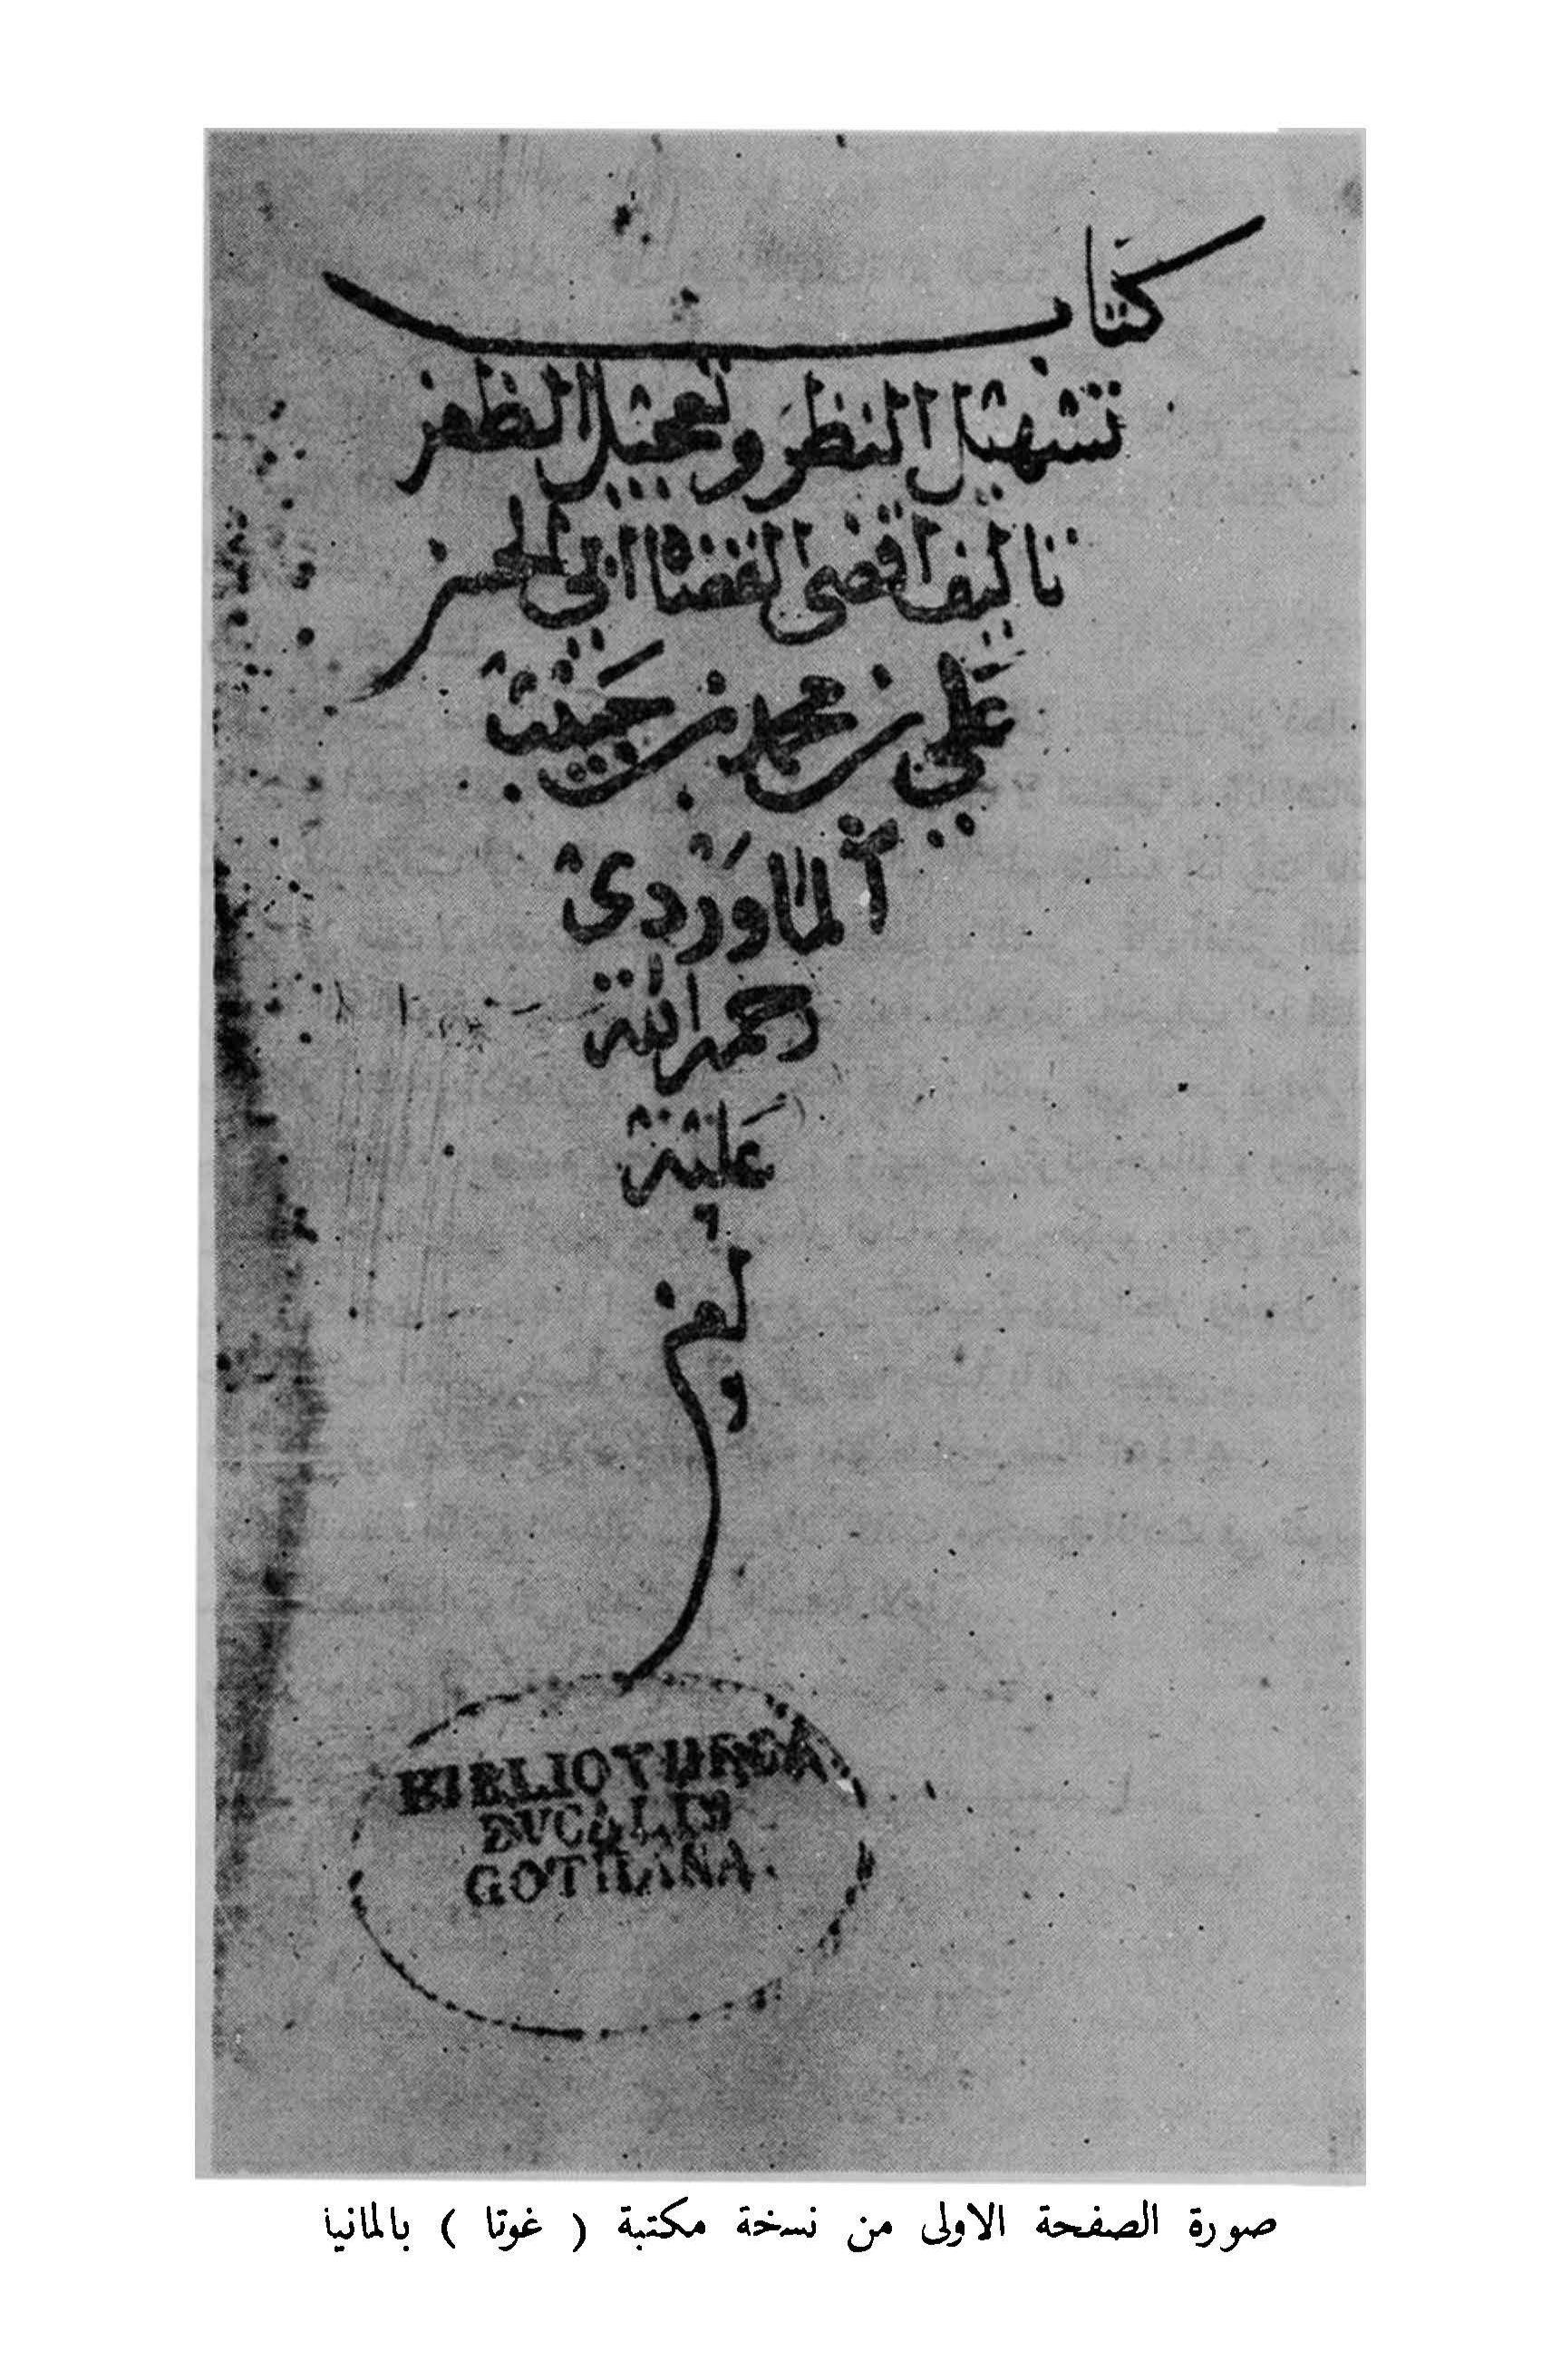 كتاب
تسهيل النظر وتعجيل الظفر
تاليف اقضى القضاة ابي الحسن
علي بن محمد بن حبيب
الماوردي
رحمه الله
عليه
BIBLIOTHECA
DVCALIS
GOTHANA.
صورة الصفحة الاولى من نسخة مكتبة ( غوتا ) بالمانيا